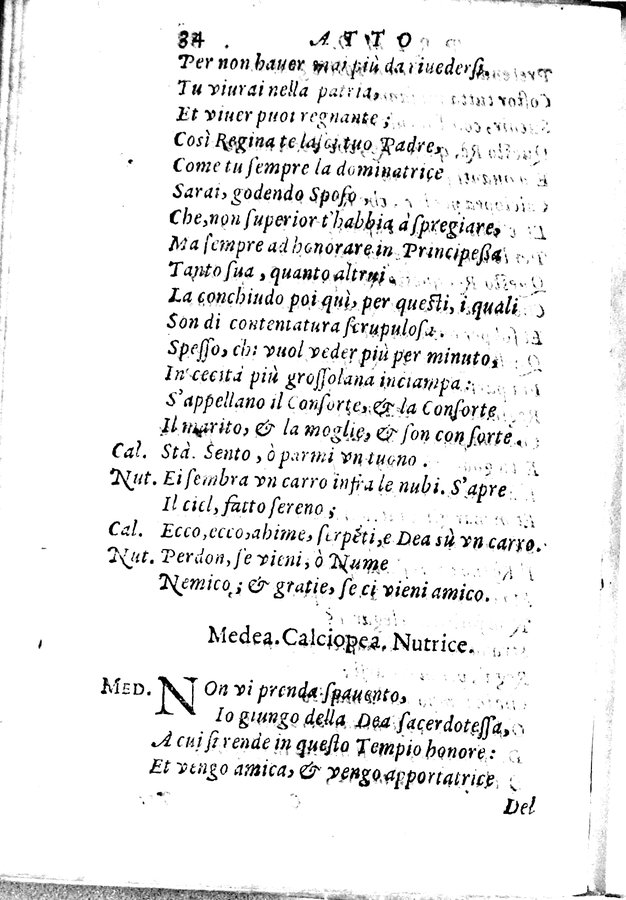 84 ATTO
Per non haver mai più da rivedersi,
Tu viurai nella patria,
Et viuer puoi regnante;
Così Regina te lasci tuo Padre,
Come tu sempre la dominatrice
Sarai, godendo Sposo
Che, non superior t'habbia à spregiare,
Ma sempre ad honorare in Principessa
Tanto sua, quanto altrui.
La conchiudo poi quì, per questi, i quali
Son di contentatura scrupulosa.
Spesso, chi vuol veder più per minuto,
In cecità più grossolana inciampa:
S'appellano il Consorte, & la Consorte
Il marito, & la moglie, & son con sorte.
Cal. Stà. Sento, ò parmi vn tuono.
Nut. Ei sembra vn carro infra le nubi. S'apre
Il ciel, fatto sereno;
Cal. Ecco, ecco, ahime, serpẽti, e Dea sù vn carro.
Nut. Perdon, se vieni, ò Nume
Nemico; & gratie, se ci vieni amico.
Medea. Calciopea. Nutrice.
MED. NOn vi prenda spauento,
Io giungo della Dea sacerdotessa,
A cui si rende in questo Tempio honore:
Et vengo amica, & vengo apportatrice
Del